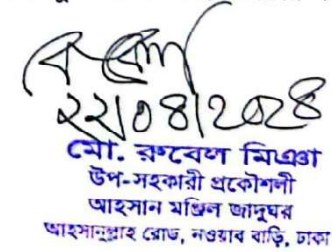 ২২/০৪/২০২৪
মো. রুবেল মিঞা
উপ-সহকারী প্রকৌশলী
আহসান মঞ্জিল জাদুঘর
আহসানুল্লাহ রোড, নওয়াব বাড়ি, ঢাকা